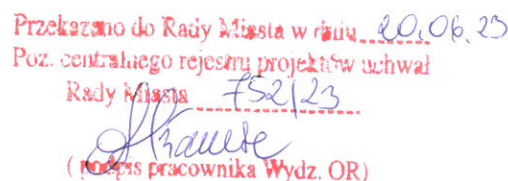 Przekazano do Rady Miasta w dniu 20.06.23
Poz. centralnego rejestru projektów uchwał
Rady Miasta 752/23
(podpis pracownika Wydz. OR)